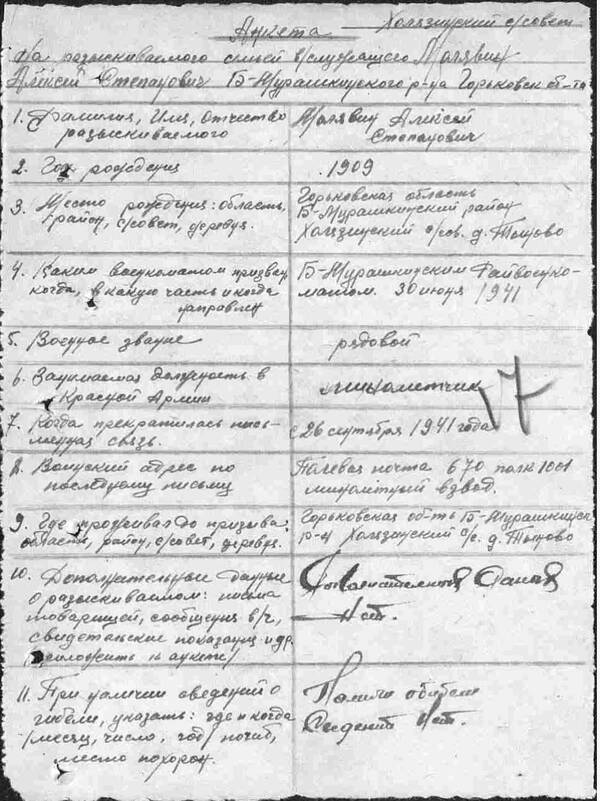 Анкета
Холязинский с/совет
На разыскиваемого семьей в/служащего Малявин
Алексей Степанович Б-Мурашкинского р-на Горьковск об-та
1. Фамилия, Имя, Отчество
разыскиваемого
Малявин Алексей
Степанович
2. Год рождения
1909
3. Место рождения: область,
район, с/совет, деревня.
Горьковская область
Б-Мурашкинский район
Холязинский с/сов. д.
4. Каким военкоматом призван
когда, в какую часть и когда
направлен
Б-Мурашкинским Райвоенко-
матом. 30 июня 1941
5. Военное звание
рядовой
6. Занимаемая должность в
Красной Армии
минометчик
17
7. Когда прекратилась пись-
менная связь.
с 26 сентября 1941 года
8. Воинский адрес по
последнему письму
Полевая почта 670 полк 1001
минометный взвод.
9. Где проживал до призыва:
область, район, с/совет, деревня.
Горьковская об-ть Б-Мурашкинск
р-н Холязинский с/с. д.
10. Дополнительные данные
о разыскиваемом: письма
товарищей, сообщения в/ч,
свидетельские показания и др.
/приложить к анкете/
Дополнительных
Нет.
11. При наличии сведений о
гибели, указать: где и когда
/месяц, число, год/ погиб,
место похорон.
о гибели
Сведений Нет.